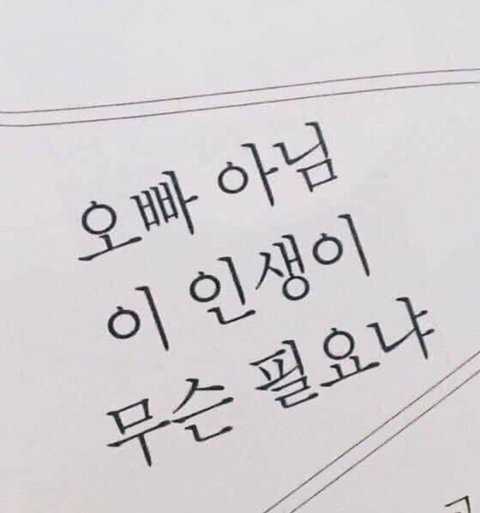 오빠 아님
이 인생이
무슨 필요냐